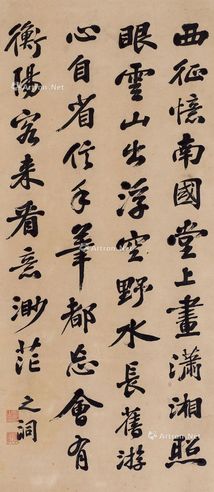 西征憶南國堂上畫瀟湘照
眼雲山出浮空野水長舊游
心自省信手筆都忘會有
衡陽客来看意渺茫
之洞
Artron.Net
Artron.Net
Artron.Net
Artron.Net